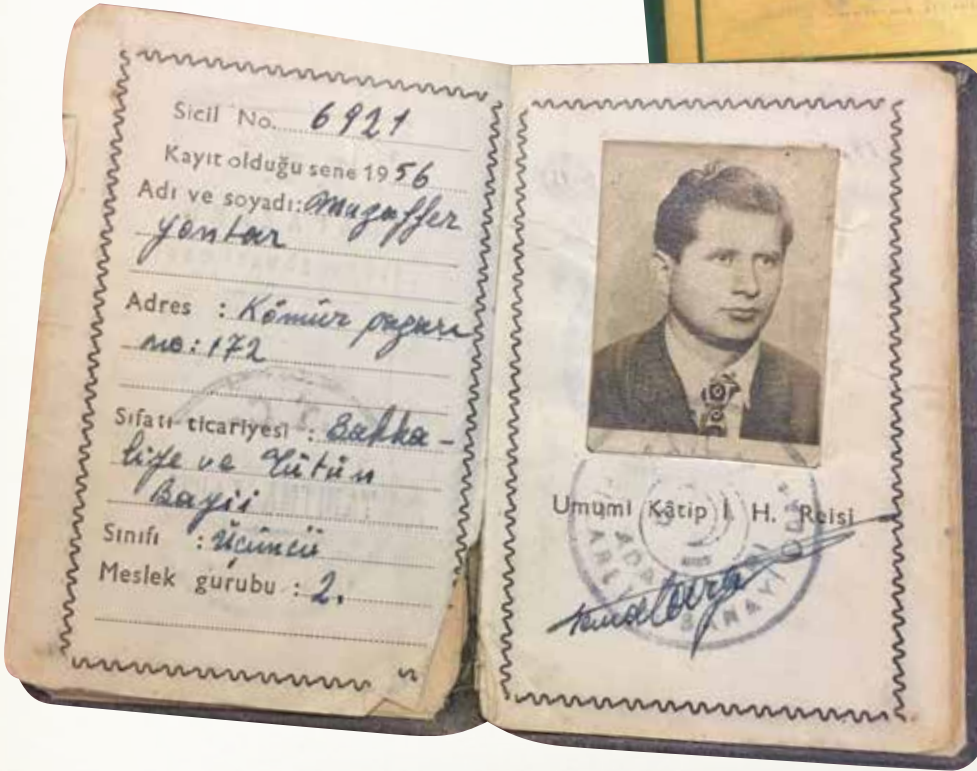 Sicil No. 6921
Kayıt olduğu sene 1956
Adı ve soyadı: Muzaffer
Yontar
Adres : Kömür pazarı
no: 172
Sıfatı ticariyesi : Bakka-
liye ve Tütün
Bayii
Sınıfı : Üçüncü
Meslek gurubu : 2.
Umumî Kâtip İ. H. Reisi
SANAYİ